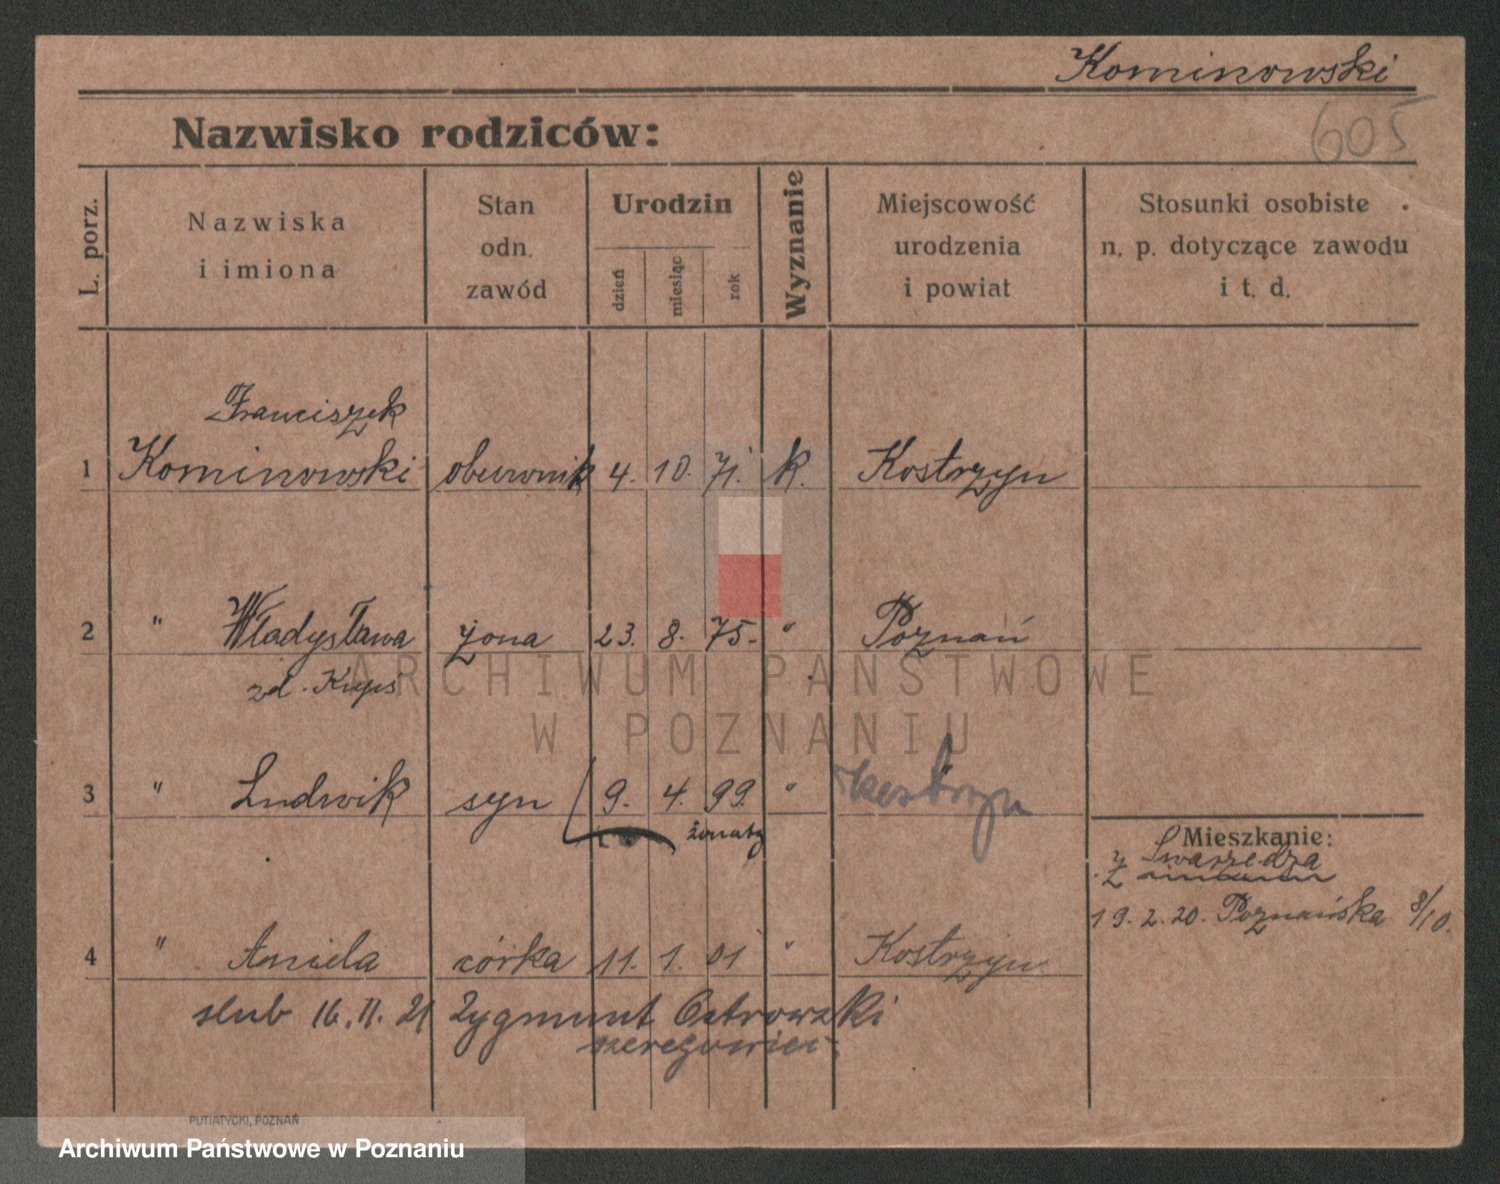 Kominowski
605
Nazwisko rodziców:
L. porz.
Nazwiska
i imiona
Stan
odn.
zawód
Urodzin
dzień
miesiąc
rok
Wyznanie
Miejscowość
urodzenia
i powiat
Stosunki osobiste
n. p. dotyczące zawodu
i t. d.
Franciszek
1 Kominowski obuwnik 4. 10. 71. k. Kostrzyn
2 " Władysława żona 23. 8. 75. " Poznań
zd. Kups
ARCHIWUM PAŃSTWOWE
W POZNANIU
3 " Ludwik syn 9. 4. 99. " Kostrzyn
żonaty
Mieszkanie:
z Swarzędza
19. 2. 20. Poznańska 8/10.
4 " Aniela córka 11. 1. 01 " Kostrzyn
slub 16. 11. 21 Zygmunt Ostrowski
szeregowiec
PUTIATYCKI, POZNAŃ
Archiwum Państwowe w Poznaniu